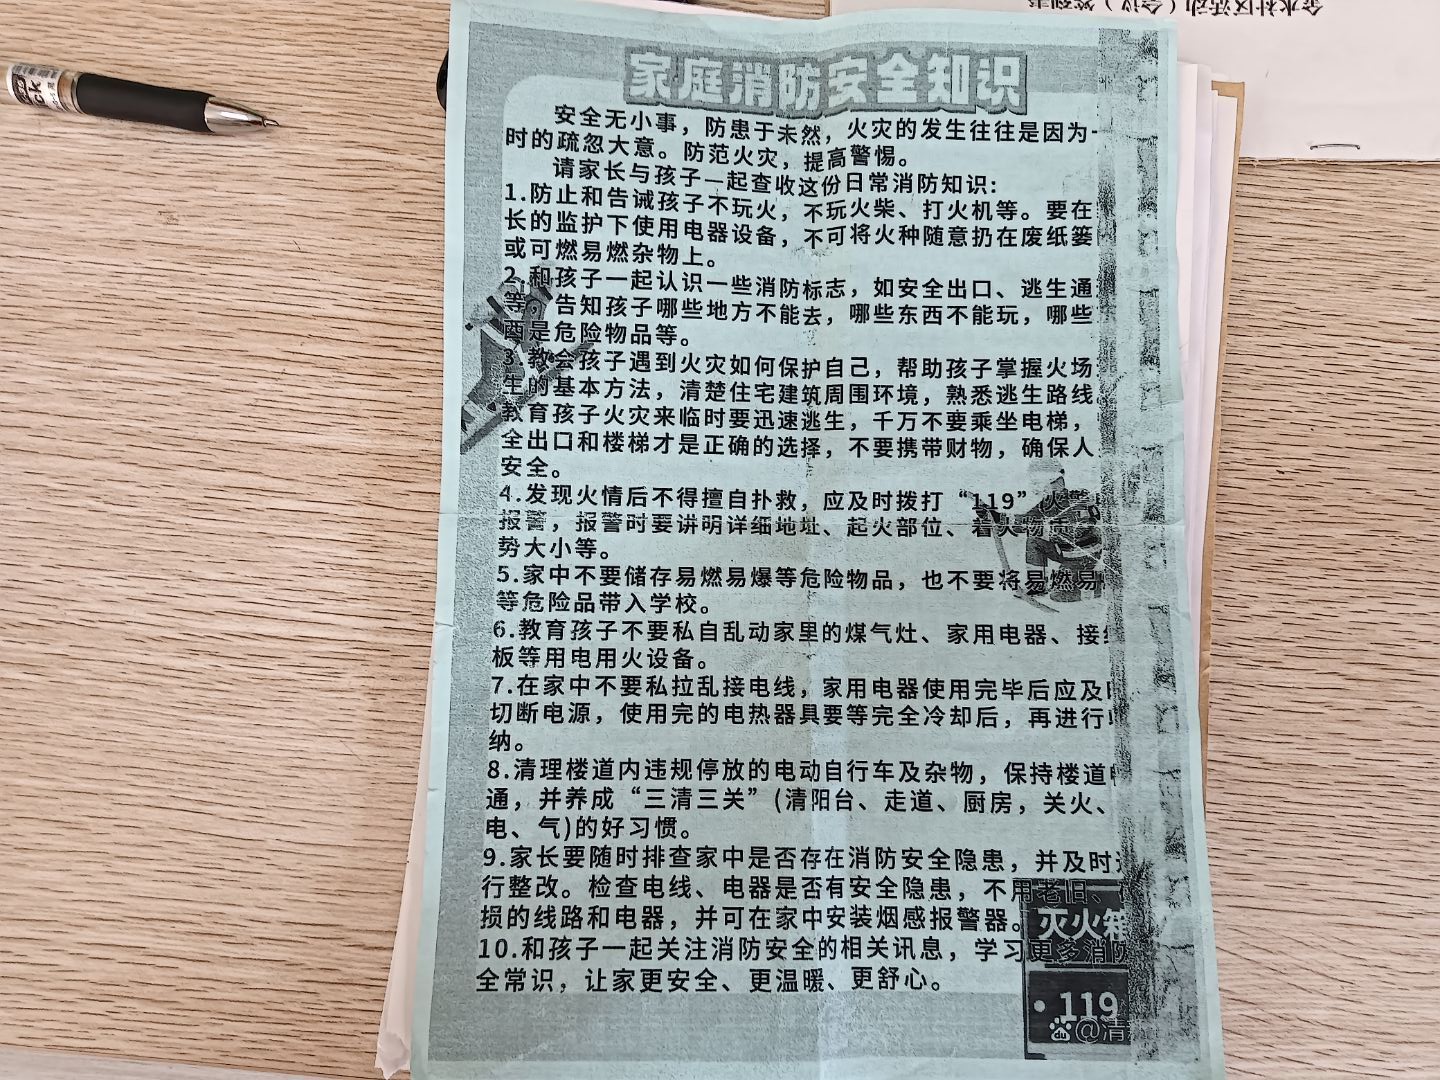 金水社区活动(会议)签到表
家庭消防安全知识
安全无小事，防患于未然，火灾的发生往往是因为一
时的疏忽大意。防范火灾，提高警惕。
请家长与孩子一起查收这份日常消防知识:
1.防止和告诫孩子不玩火，不玩火柴、打火机等。要在
长的监护下使用电器设备，不可将火种随意扔在废纸篓
或可燃易燃杂物上。
2.和孩子一起认识一些消防标志，如安全出口、逃生通
等。告知孩子哪些地方不能去，哪些东西不能玩，哪些
是危险物品等。
3.教会孩子遇到火灾如何保护自己，帮助孩子掌握火场
生的基本方法，清楚住宅建筑周围环境，熟悉逃生路线
教育孩子火灾来临时要迅速逃生，千万不要乘坐电梯，
全出口和楼梯才是正确的选择，不要携带财物，确保人
安全。
4.发现火情后不得擅自扑救，应及时拨打“119”火警
报警，报警时要讲明详细地址、起火部位、着火物质
势大小等。
5.家中不要储存易燃易爆等危险物品，也不要将易燃易
等危险品带入学校。
6.教育孩子不要私自乱动家里的煤气灶、家用电器、接
板等用电用火设备。
7.在家中不要私拉乱接电线，家用电器使用完毕后应及
切断电源，使用完的电热器具要等完全冷却后，再进行
纳。
8.清理楼道内违规停放的电动自行车及杂物，保持楼道
通，并养成“三清三关”(清阳台、走道、厨房，关火、
电、气)的好习惯。
9.家长要随时排查家中是否存在消防安全隐患，并及时
行整改。检查电线、电器是否有安全隐患，不用老旧、
损的线路和电器，并可在家中安装烟感报警器。
10.和孩子一起关注消防安全的相关讯息，学习更多消防
全常识，让家更安全、更温暖、更舒心。
灭火箱
·119
du @清